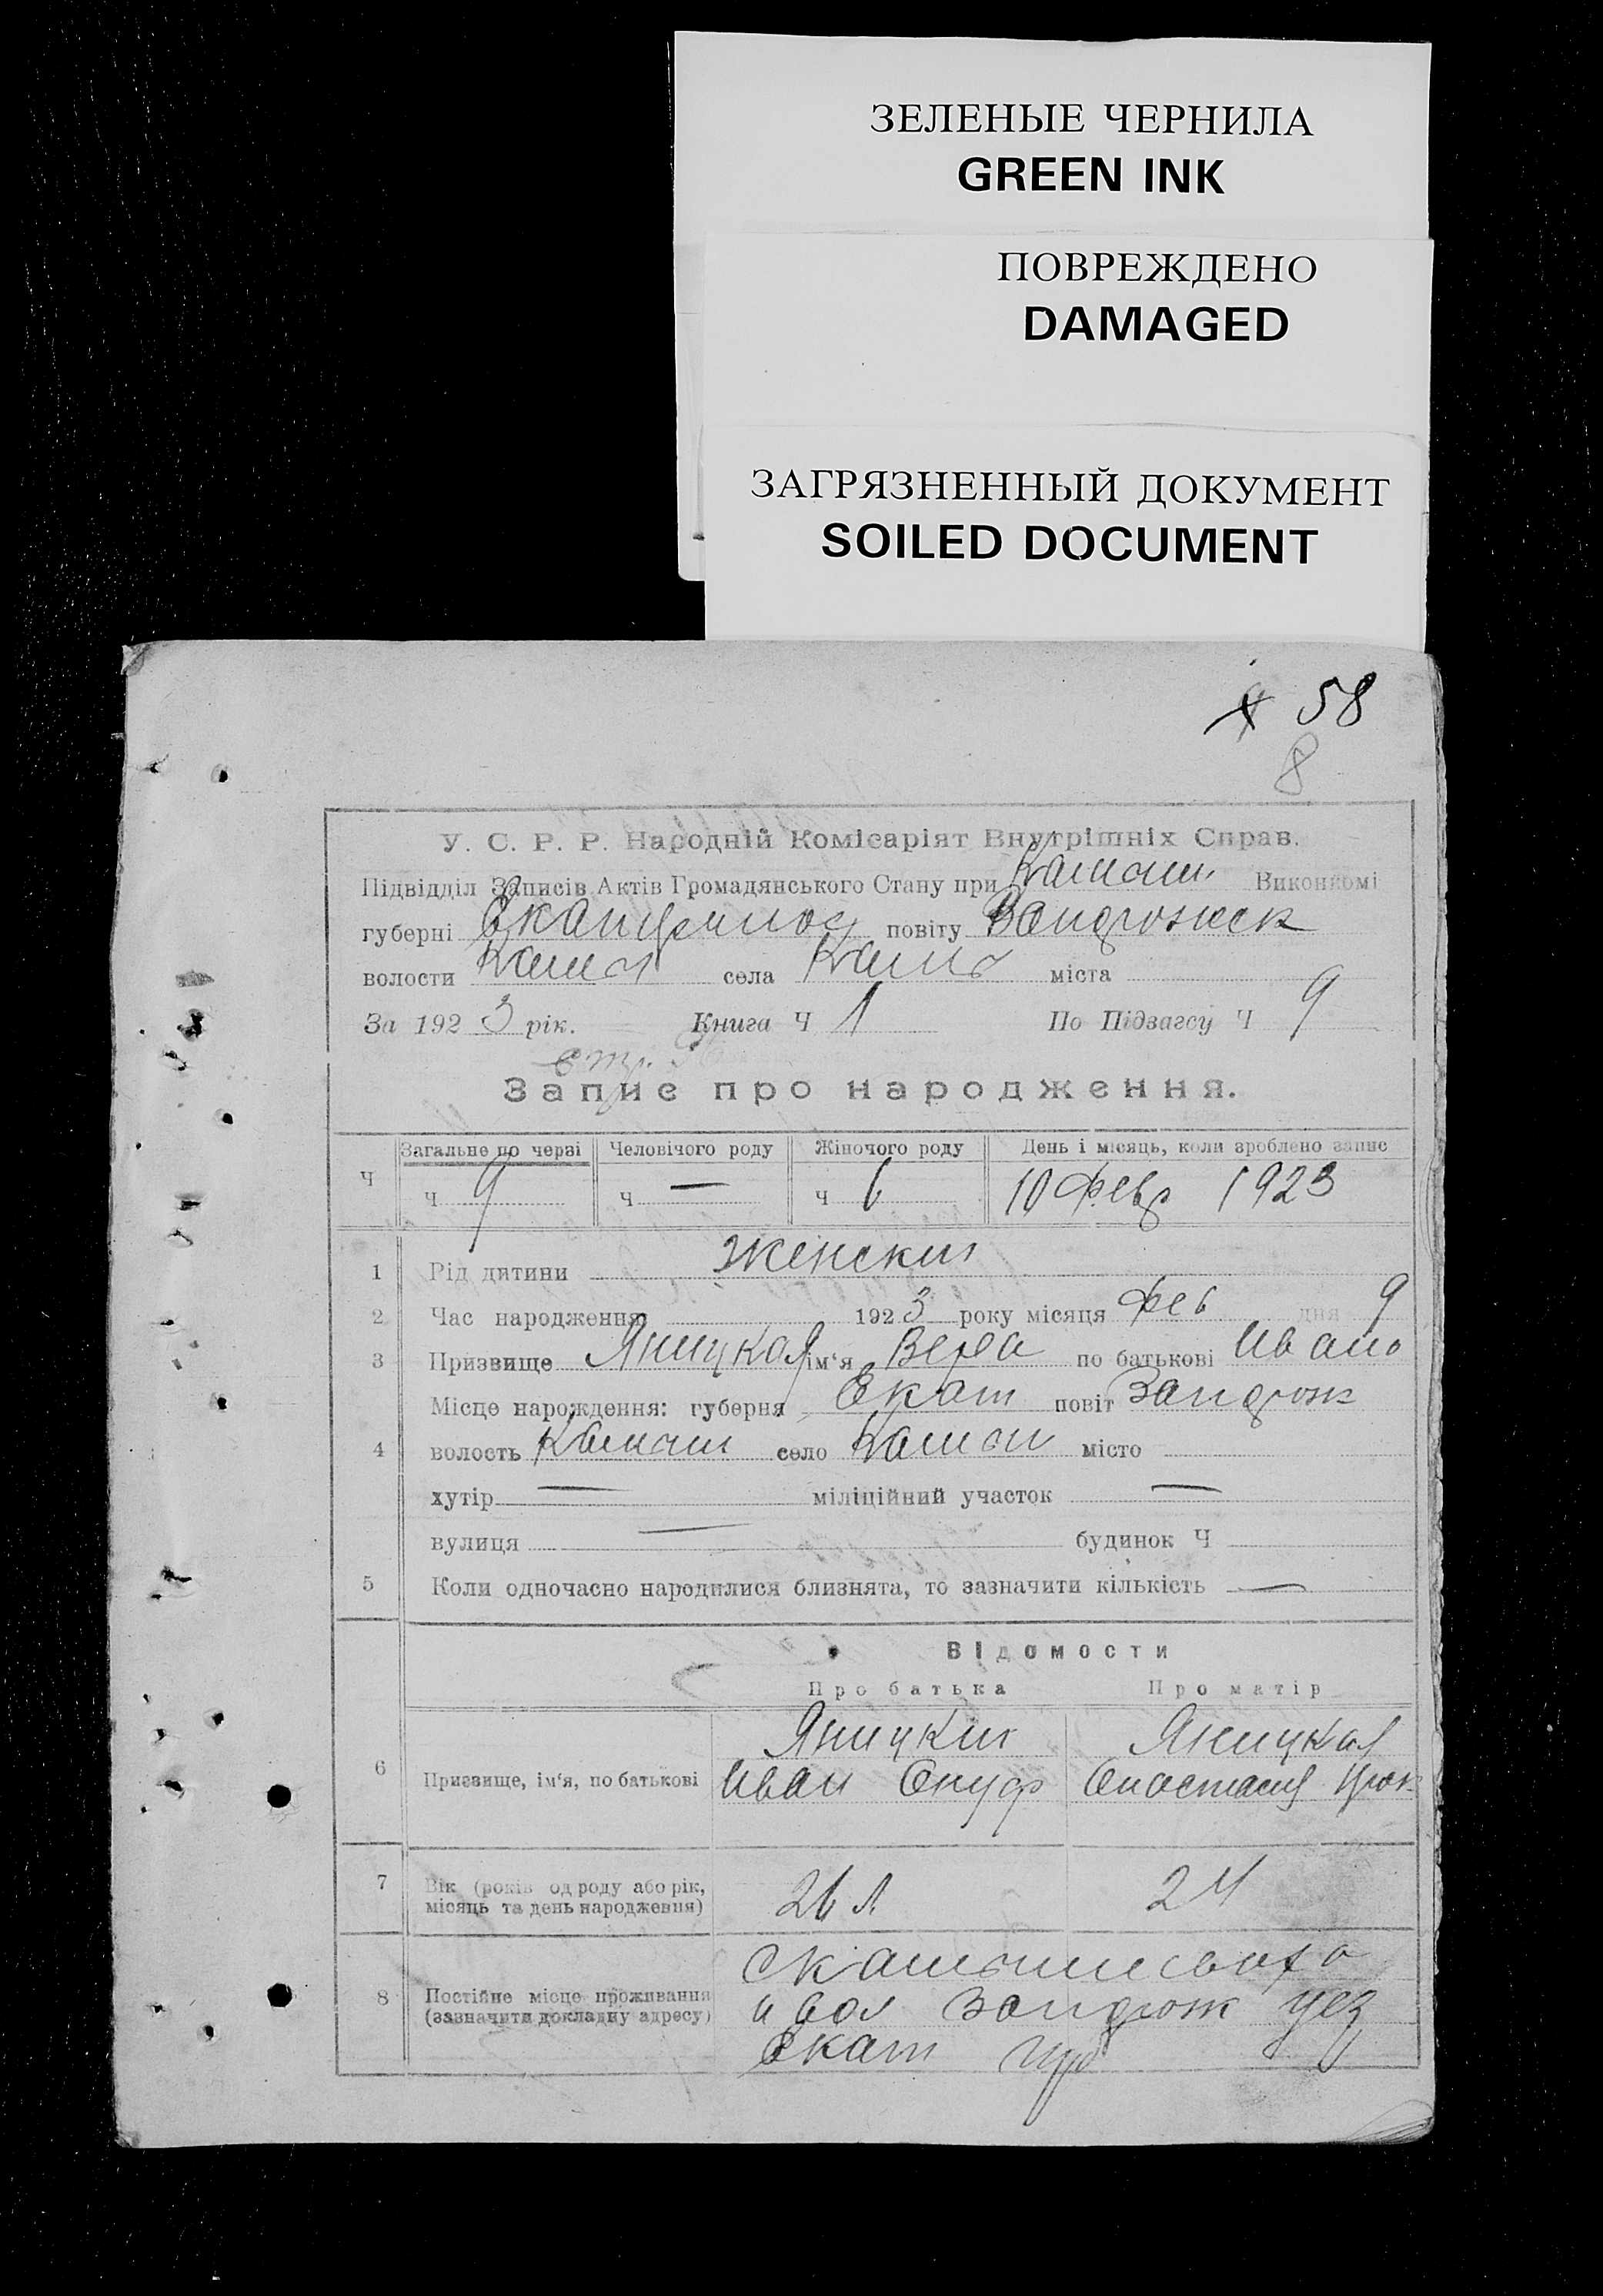 ЗЕЛЕНЫЕ ЧЕРНИЛА
GREEN INK
ПОВРЕЖДЕНО
DAMAGED
ЗАГРЯЗНЕННЫЙ ДОКУМЕНТ
SOILED DOCUMENT
58
8
У. С. Р. Р. Народній Комісаріят Внутрішніх Справ.
Підвідділ Записів Актів Громадянського Стану при Виконкомі
губерні повіту
волости села міста
За 192 3 рік. Книга Ч 1 По Підзагсу Ч 9
стр.
Запис про народження.
Загальне по черзі Человічого роду Жіночого роду День і місяць, коли зроблено запис
Ч ч 9 ч — ч 6 10 февр 1923
1 Рід дитини Женский
2 Час народження: 1923 року місяця фев дня 9
3 Призвище Яницкая ім'я Вера по батькові Ивано
Місце нарождення: губерня Екат повіт Запорож
4 волость село місто
хутір — міліційний участок —
вулиця — будинок Ч
5 Коли одночасно народилися близнята, то зазначити кількість —
Відомости
Про батька Про матір
Яницкий Яницкая
6 Призвище, ім'я, по батькові Иван Онуф Анастасия
7 Вік (років од роду або рік, місяць та день народження) 26 л 24
8 Постійне місце проживання (зазначити докладну адресу)
и вол Запорож уез
Екат губ